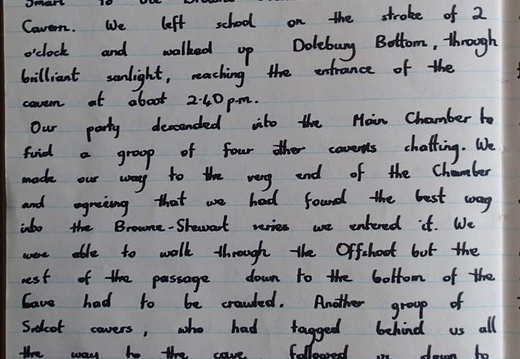 Smart to the Browne
Cavern. We left school on the stroke of 2
o'clock and walked up Dolebury Bottom, through
brilliant sunlight, reaching the entrance of the
cavern at about 2.40 p.m.
Our party descended into the Main Chamber to
find a group of four other cavers chatting. We
made our way to the very end of the Chamber
and agreeing that we had found the best way
into the Browne-Stewart series we entered it. We
were able to walk through the Offshoot but the
rest of the passage down to the bottom of the
Cave had to be crawled. Another group of
Sidcot cavers, who had tagged behind us all
the way to the cave followed us down to